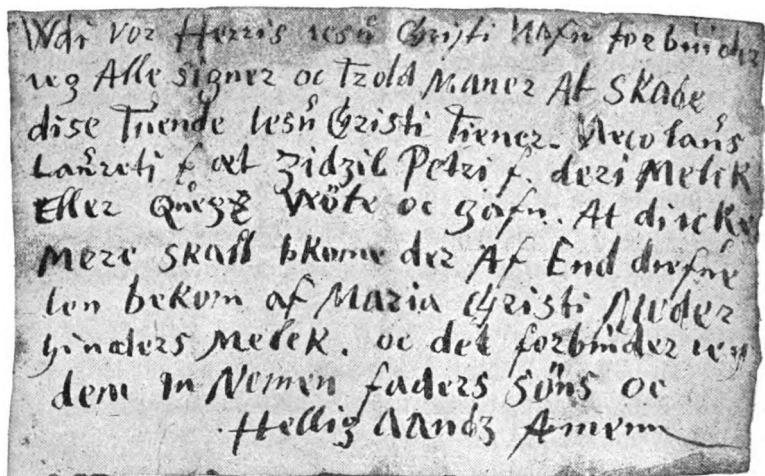 Wdi vor Herris iesu Christi Nafn forbinder
ieg Alle signer oc Trold Maner At skade
dise Tuende Iesu Christi Tiener. Necolaus
Laureti f oct Zidzil Petri f. deri Melck
Eller Quegz Nöte oc gafn. At di icke
Mere skall bkome der Af End diefue
len bekom af Maria Christi Moder
hinders Melck. oc det forbinder ieg
dem In Nomen faders söns oc
Hellig AAndz Amenn